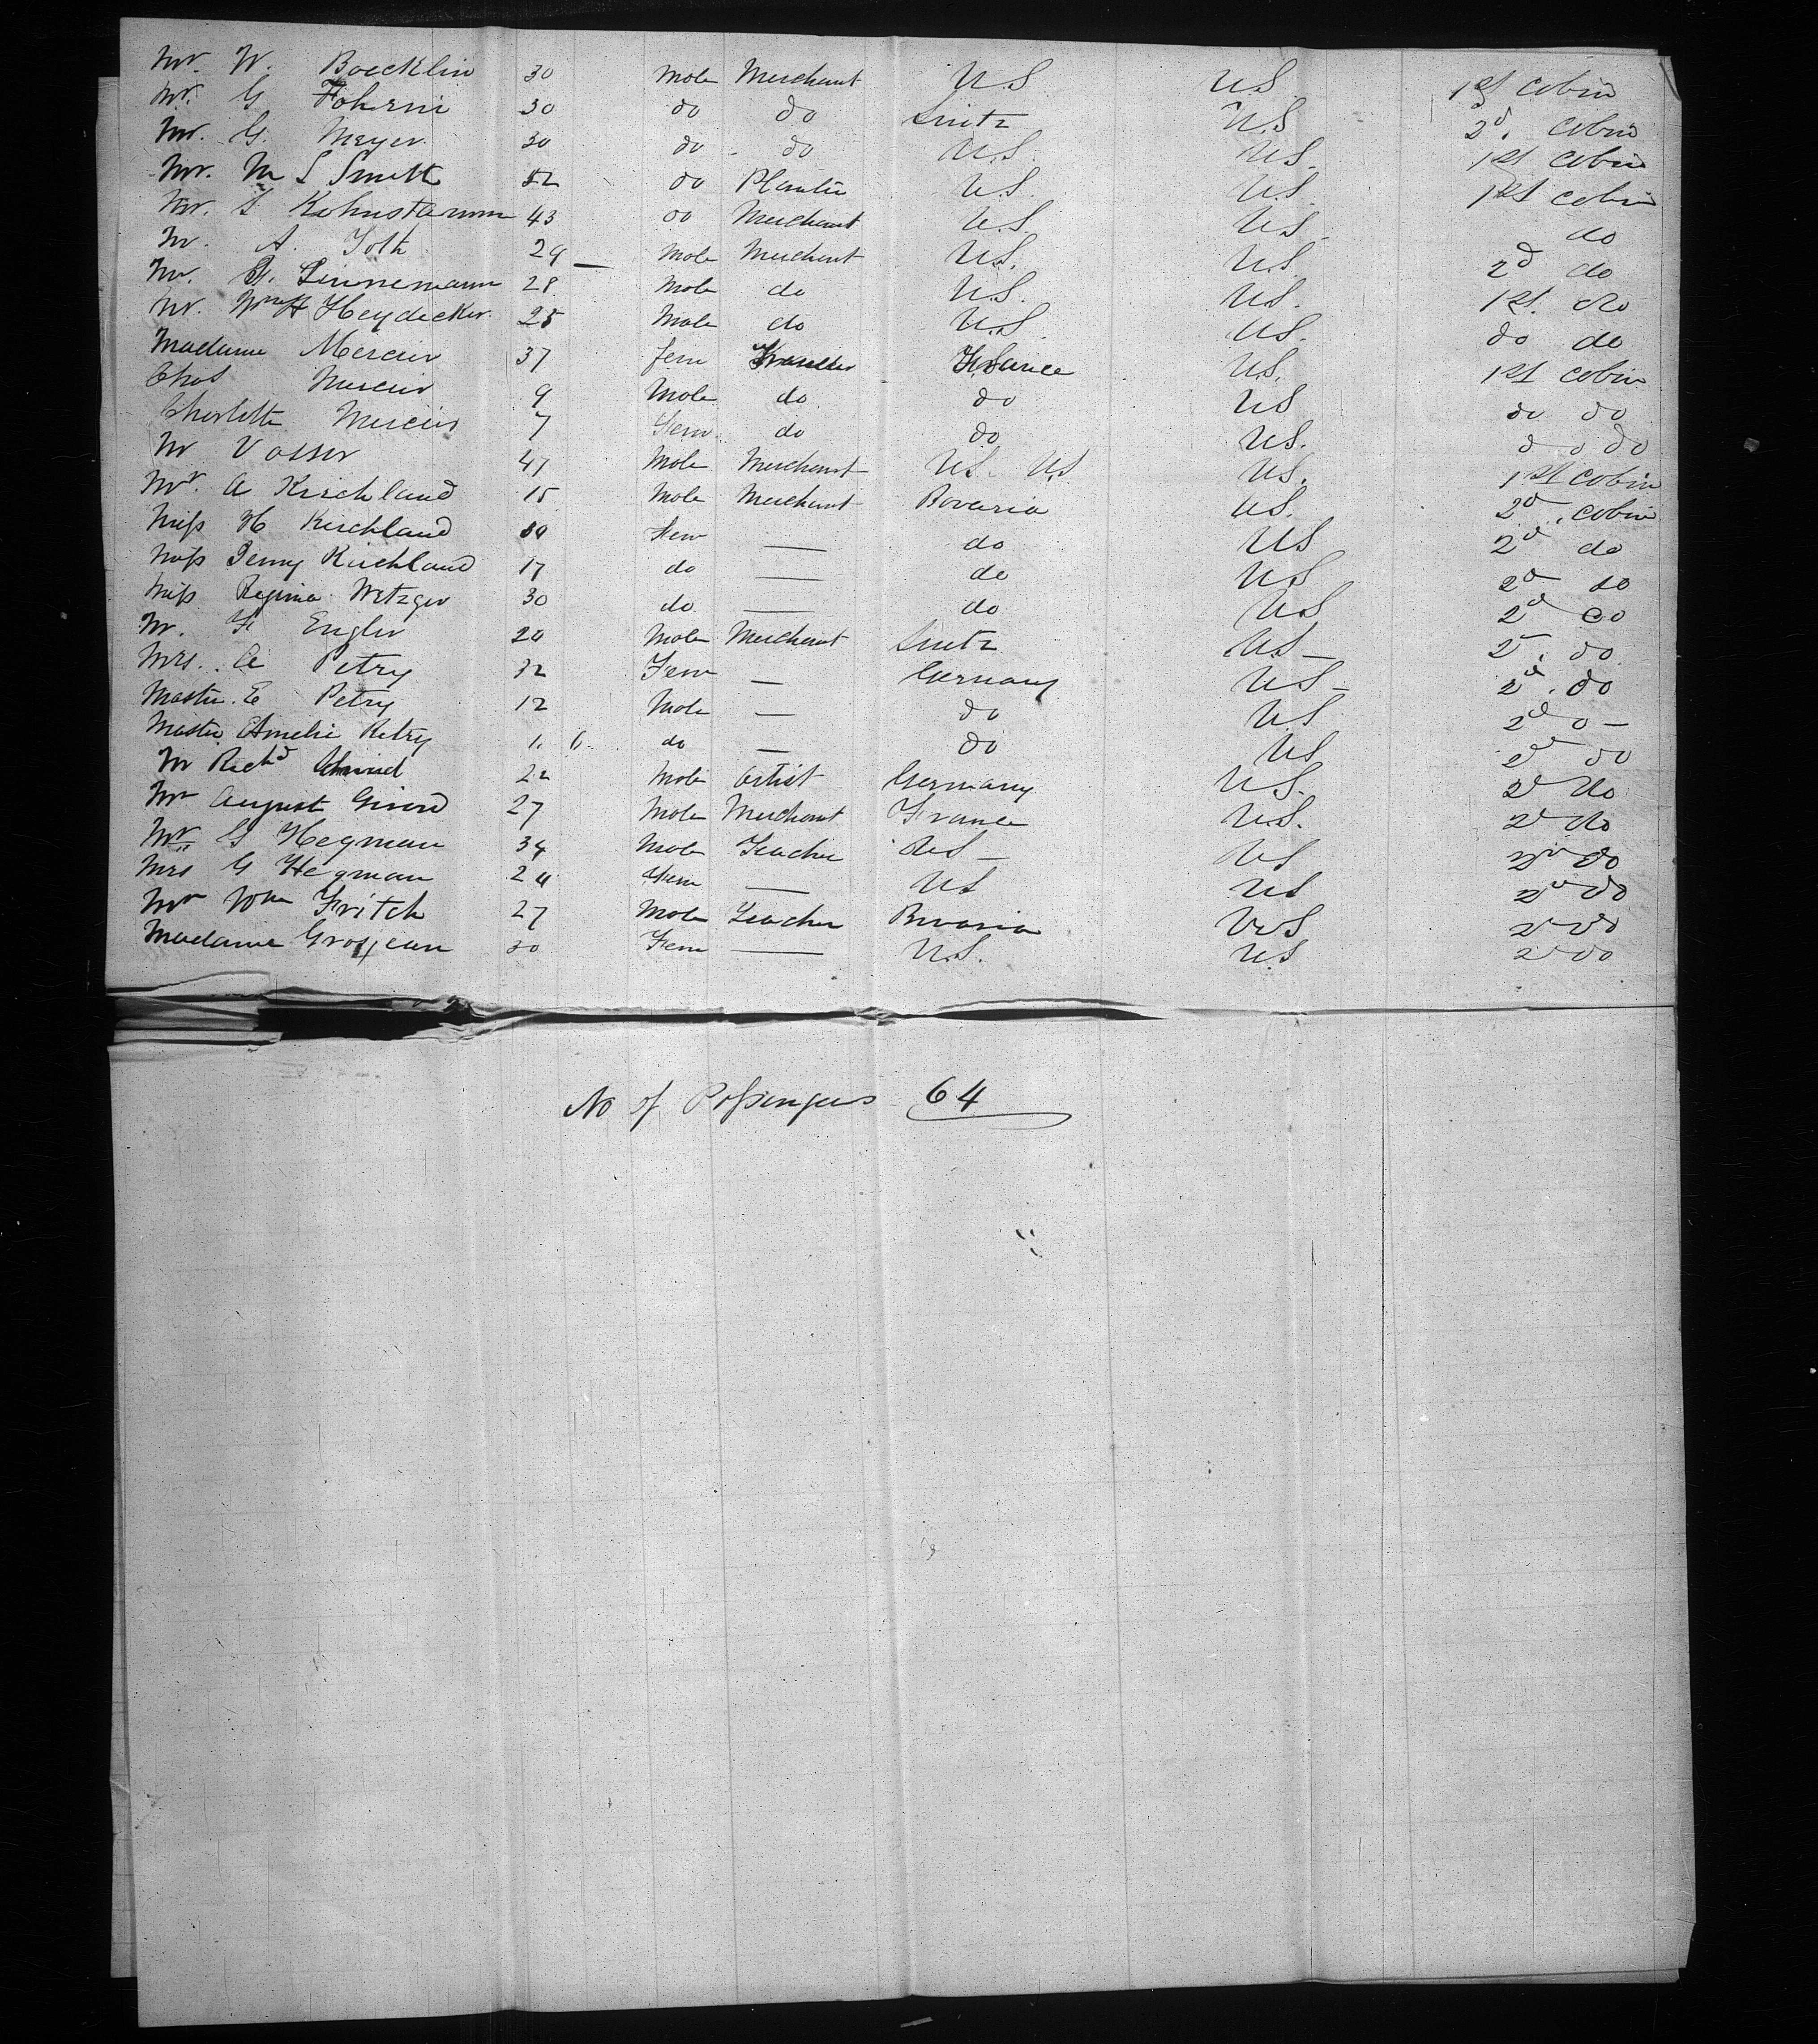 Mr. W. Boecklin 30 Male Merchant U S U S 1st Cabin
Mr. G Fohrni 30 do do Switz U.S 2d. Cabin
Mr. G. Meyer 30 do do U.S. U.S. 1st Cabin
Mr. M S Smith 52 do Planter U.S. U.S. 1st Cabin
Mr. S Kohnstamm 43 do Merchant U.S. U.S do
Mr. A. 29 Male Merchant U.S. U.S. 2d do
Mr. Linnemann 28. Male do U.S. U.S. 1st. do
Mr. Wm H Heydecker 25 Male do U.S. U.S. do do
Madame Mercier 37 fem Traveller France U.S. 1st Cabin
Chas Mercier 9 Male do do U S do do
Charlotte Mercier 7 Fem do do U.S. do do
Mr Vasser 47 Male Merchant U.S. U.S U.S. 1st Cabin
Mr. A Kirchland 15 Male Merchant Bavaria U.S. 2d. Cabin
Miss H Kirchland Fem — do U S 2d do
Miss Jenny Kirchland 17 do — do U S 2d do
Miss Regina Metzger 30 do — do U S 2d do
Mr. F Engler 20 Male Merchant Switz U.S — 2d. do
Mrs. A Petry 32 Fem — Germany U S — 2d. do
Master. E Petry 12 Male — do U.S 2d o —
Master Amelie Petry 1. 6. do — do U S 2d do
Mr Richd 22 Male Artist Germany U.S. 2d do
Mr August Girard 27 Male Merchant France U.S. 2d do
Mr G Hegman 34 Male Teacher U S — U S 2d do
Mrs G Hegman 24 Fem — U S U S 2d do
Mr Wm Fritch 27 Male Teacher Bavaria U S 2d do
Madame Grosjean 30 Fem — U.S. U.S 2d do
No of Passengers 64